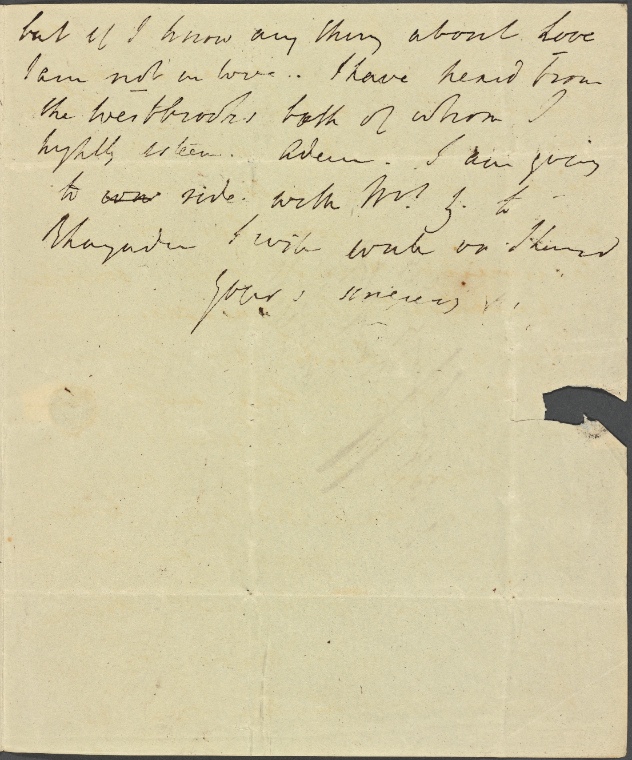 but if I know any thing about Love
I am not in love.. I have heard from
the Westbrooks both of whom I
highly esteem. Adieu. I am going
to ride with Mr. G. to
Rhayader I will write on
Yours sincerely